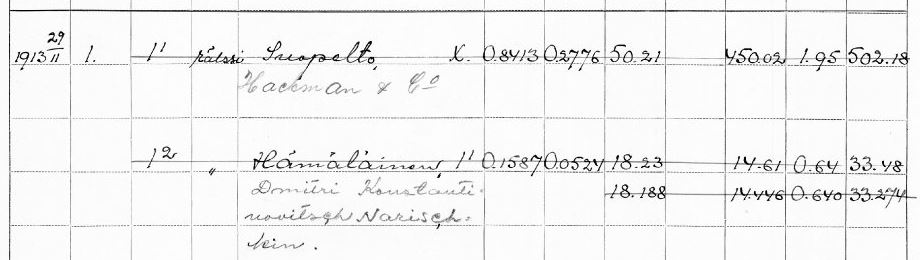 1913 29/11 1. 1¹ rälssi Suopelto, X. 0.8413 0.2776 50.21 450.02 1.95 502.18
Hackman & Co
1² " Hämäläinen, 1¹ 0.1587 0.0524 18.23 14.61 0.64 33.48
Dmitri Konstanti- 18.188 14.446 0.640 33.274
novitsch Narisch-
kin.